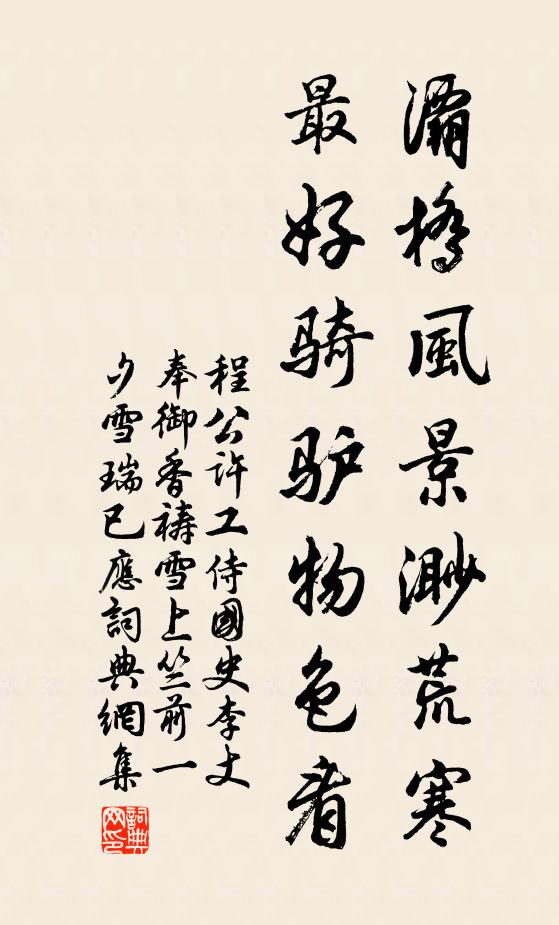 灞橋風景渺荒寒
最好骑驴物色看
程公许工侍國史李丈
奉御香禱雪上竺前一
夕雪瑞已應詞典網集
詞典
网印